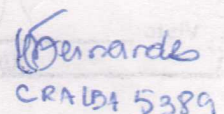 Fernandes
CRA/BA 5389